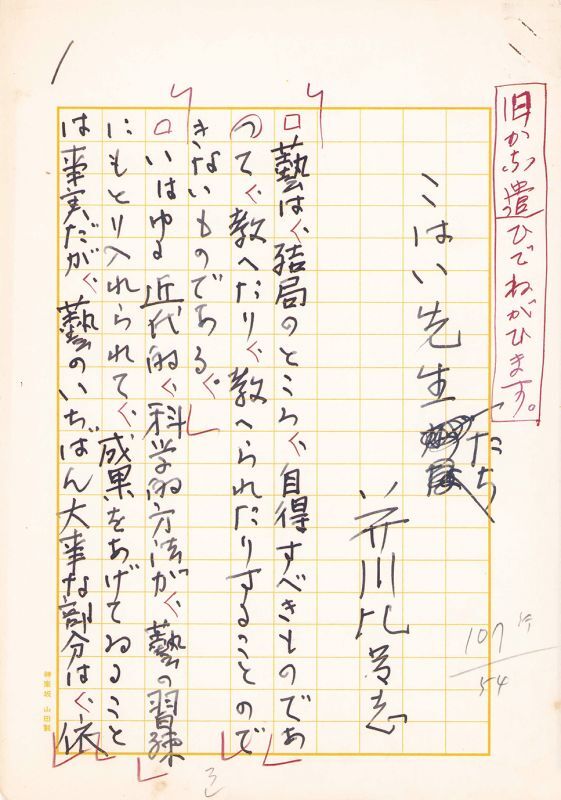 旧かな遣ひでねがひます。
こはい先生たち
芥川比呂志
藝は、結局のところ、自得すべきものであ
つて、教へたり、教へられたりすることので
きないものである。
いはゆる近代的、科学的方法が、藝の習練
にもとり入れられて、成果をあげてゐること
は事実だが、藝のいちばん大事な部分は、依
107
54
神楽坂 山田製